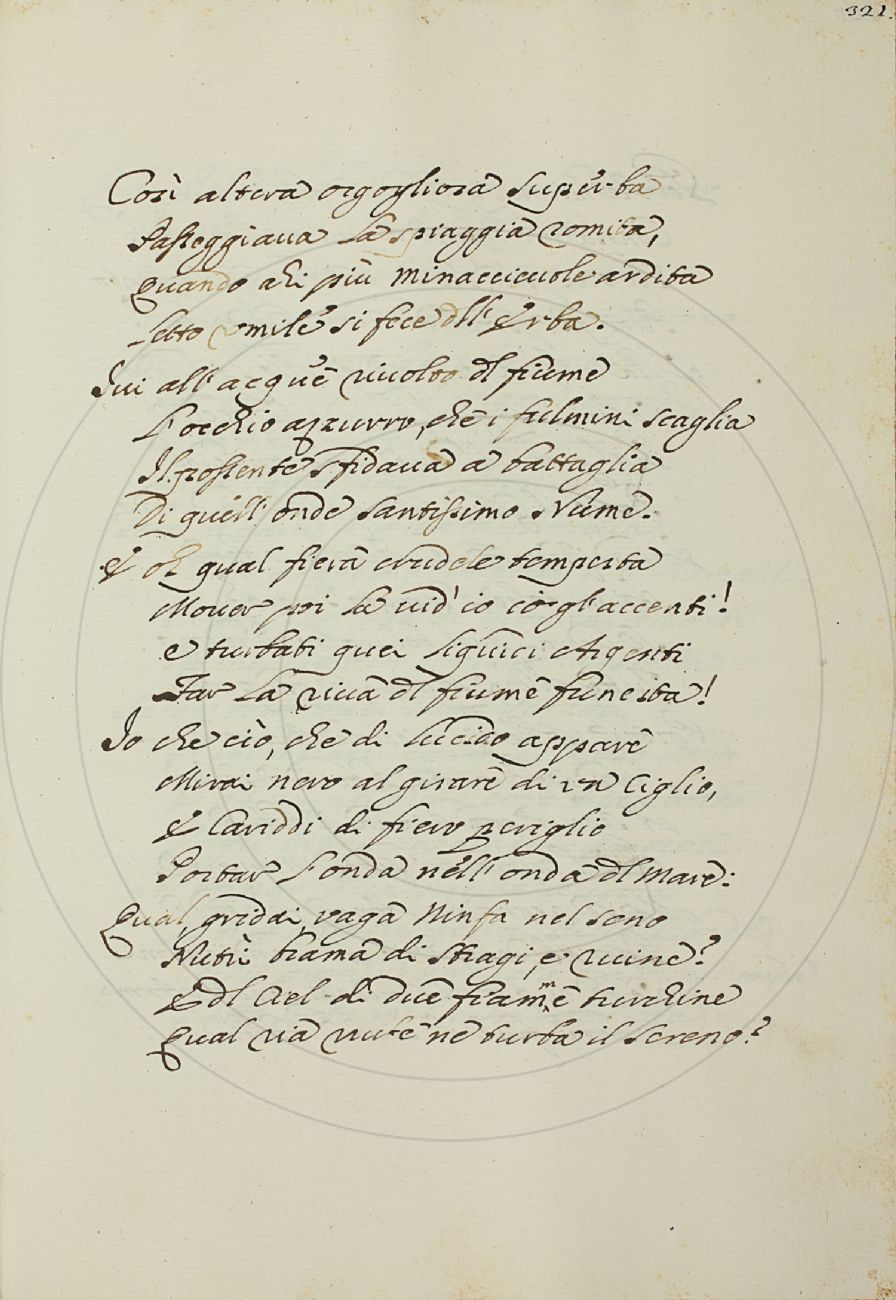 321.
Così altera orgogliosa superba
Passeggiaua la spiaggia romita,
Quando ahi più minaccieuole ardita
Letto vmile si fece dll' Erba.
Iui all' acque riuolto dl fiume
L'occhio azzurro, che i fulmini scaglia
Il possente sfidaua a battaglia
Di quell' onde santissimo Nume.
E oh qual fiera crudele tempesta
Mouer poi la vid' io co gl' accenti!
E turbati quei liquidi Argenti
Far la riua dl fiume funesta!
Io che ciò, che di lucido appare
Mirai nero al girare di vn Ciglio,
E Cariddi di fiero periglio
Portar l'onda nell' onda dl Mare:
Qual, gridai, vaga Ninfa nel seno
Nutrì brama di stragi, e ruine?
E dl Ciel di due fiamme turchine
Qual ria nube ne turba il sereno?